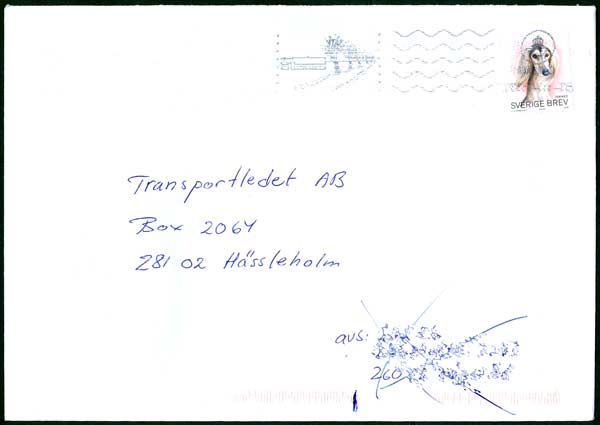 SVERIGE BREV
Transportledet AB
Box 2064
281 02 Hässleholm
avs:
260